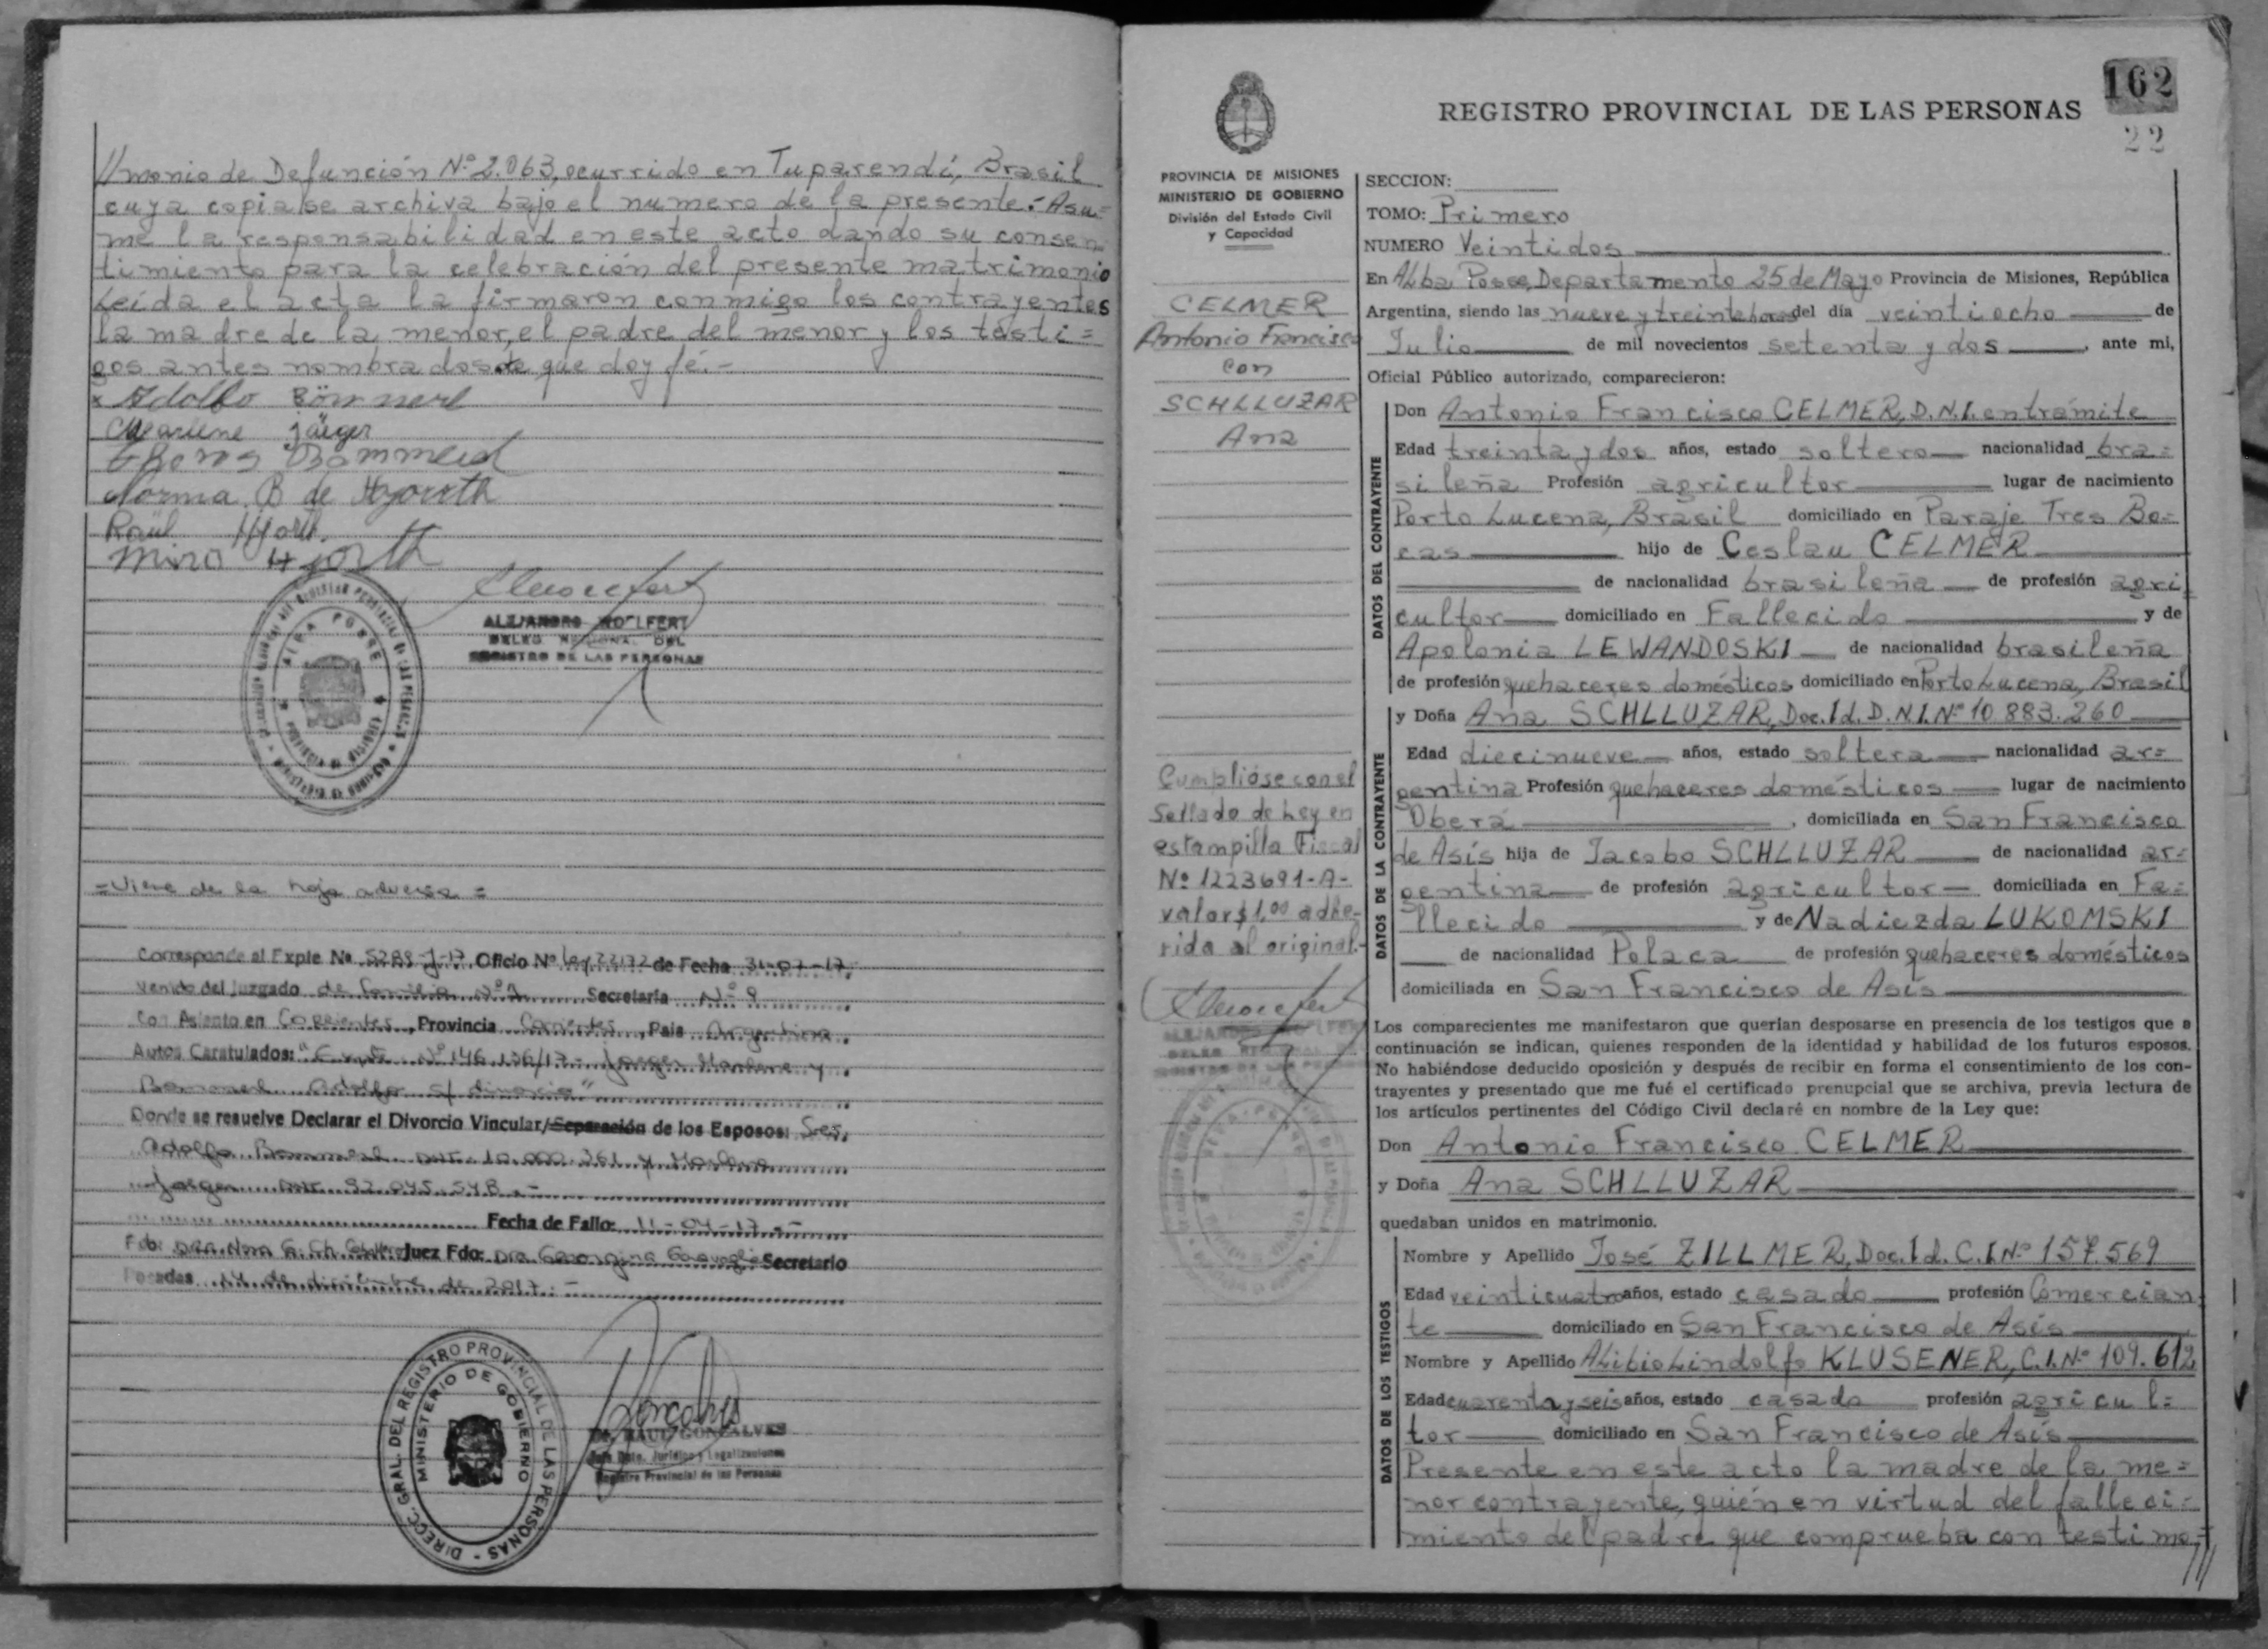 //monio de Defunción Nº 2.063, ocurrido en Tuparendí, Brasil
cuya copia se archiva bajo el numero de la presente.- Asu=
me la responsabilidad en este acto dando su consen
timiento para la celebración del presente matrimonio
Leída el acta la firmaron conmigo los contrayentes
la madre de la menor, el padre del menor y los testi=
gos antes nombrados de que doy fé.-
x Adolfo Bömmerl
Marlene jäeger
Norma B de Hyorth
Raúl Hjorth.
Miro Hjorth
ALEJANDRO WOLFERT
DELEG REGIONAL DEL
REGISTRO DE LAS PERSONAS
ALBA POSSE
=Viene de la hoja adversa=
Corresponde al Expte Nº 5289-J-17 Oficio Nº Ley 22172 de Fecha 31-07-17.
venido del juzgado de Familia Nº 1 Secretaría Nº 9
Con Asiento en Corrientes, Provincia Corrientes, Pais Argentina.
Autos Caratulados: "Expte Nº 146.136/17- Jaeger Marlene y
Bommerl Adolfo s/ divorcio"
Donde se resuelve Declarar el Divorcio Vincular/Separación de los Esposos: Sres.
Adolfo Bommerl DNI. 10.000.361 y Marlene
Jaeger DNI 92.045.548.-
Fecha de Fallo: 11-04-17.-
Fdo: DRA. Juez Fdo: Dra Georgina Secretario
Posadas 14 de diciembre de 2017.-
DIRECC. GRAL. DEL REGISTRO PROVINCIAL DE LAS PERSONAS
MINISTERIO DE GOBIERNO
RAUL GONCALVES
Jefe Dpto. Jurídico y Legalizaciones
Registro Provincial de las Personas
162
22
REGISTRO PROVINCIAL DE LAS PERSONAS
PROVINCIA DE MISIONES
MINISTERIO DE GOBIERNO
División del Estado Civil
y Capacidad
CELMER
Antonio Francisco
con
SCHLLUZAR
Ana
Cumplióse con el
Sellado de Ley en
estampilla Fiscal
Nº 1223691-A-
valor $1,00 adhe-
rida al original.-
SECCION:
TOMO: Primero
NUMERO Veintidos
En Alba Posse, Departamento 25 de Mayo Provincia de Misiones, República
Argentina, siendo las nueve y treinta horas del día veintiocho de
Julio de mil novecientos setenta y dos, ante mi,
Oficial Público autorizado, comparecieron:
DATOS DEL CONTRAYENTE
Don Antonio Francisco CELMER, D.N.I. en trámite
Edad treinta y dos años, estado soltero nacionalidad bra=
sileña Profesión agricultor lugar de nacimiento
Porto Lucena, Brasil domiciliado en Paraje Tres Bo=
cas hijo de Ceslau CELMER
de nacionalidad brasileña de profesión agri
cultor domiciliado en Fallecido y de
Apolonia LEWANDOSKI de nacionalidad brasileña
de profesión quehaceres domésticos domiciliado en Porto Lucena, Brasil
DATOS DE LA CONTRAYENTE
y Doña Ana SCHLLUZAR, Doc. Id. D.N.I. Nº 10.883.260
Edad diecinueve años, estado soltera nacionalidad ar=
gentina Profesión quehaceres domésticos lugar de nacimiento
Oberá, domiciliada en San Francisco
de Asís hija de Jacobo SCHLLUZAR de nacionalidad ar=
gentina de profesión agricultor domiciliada en Fa=
llecido y de Nadiezda LUKOMSKI
de nacionalidad Polaca de profesión quehaceres domésticos
domiciliada en San Francisco de Asís
Los comparecientes me manifestaron que querían desposarse en presencia de los testigos que a
continuación se indican, quienes responden de la identidad y habilidad de los futuros esposos.
No habiéndose deducido oposición y después de recibir en forma el consentimiento de los con-
trayentes y presentado que me fué el certificado prenupcial que se archiva, previa lectura de
los artículos pertinentes del Código Civil declaré en nombre de la Ley que:
Don Antonio Francisco CELMER
y Doña Ana SCHLLUZAR
quedaban unidos en matrimonio.
DATOS DE LOS TESTIGOS
Nombre y Apellido José ZILLMER, Doc. Id. C.I. Nº 157.569
Edad veinticuatro años, estado casado profesión Comercian
te domiciliado en San Francisco de Asís
Nombre y Apellido Alibio Lindolfo KLUSENER, C.I. Nº 109.612
Edad cuarenta y seis años, estado casado profesión agricul=
tor domiciliado en San Francisco de Asís
Presente en este acto la madre de la me=
nor contrayente, quién en virtud del falleci=
miento del padre que comprueba con testimo=//